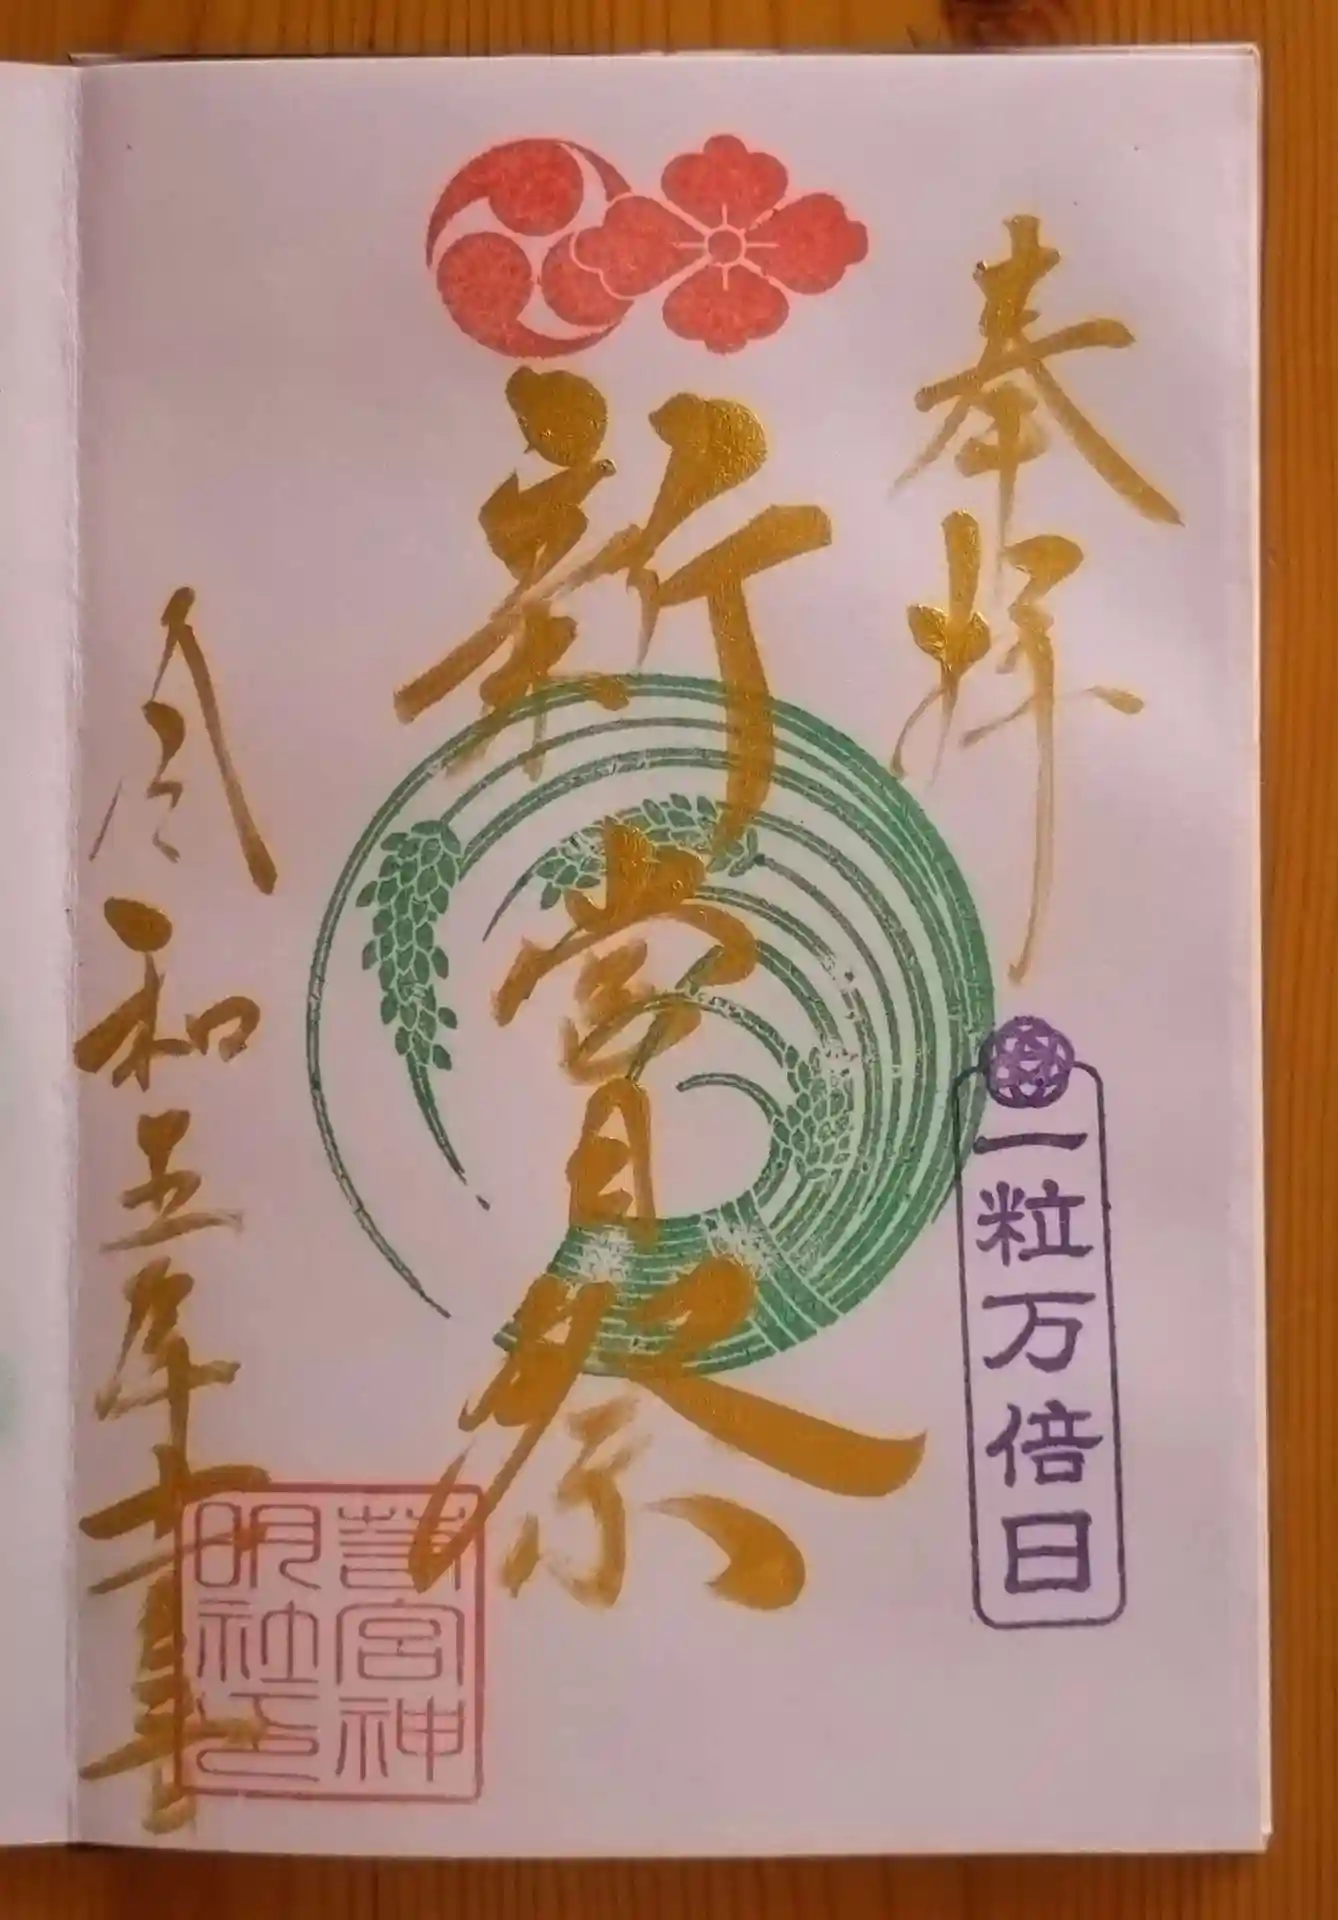 奉拝
一粒万倍日
新嘗祭
令和五年十一月
宮神
明社印